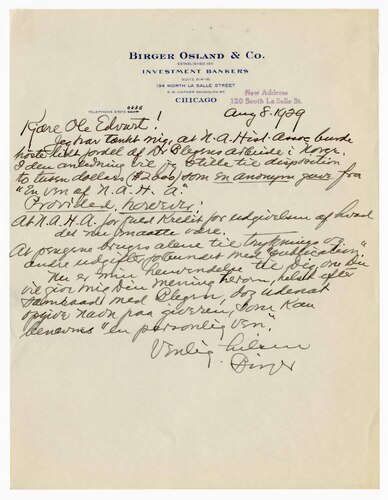 BIRGER OSLAND & CO.
ESTABLISHED 1911
INVESTMENT BANKERS
134 NORTH LA SALLE STREET
S.W. CORNER RANDOLPH ST.
CHICAGO
New Address
120 South La Salle St.
TELEPHONE STATE
Aug 8 - 1929
Kære Ole Edvart!
Jeg har tænkt mig, at N.A. Hist. Assoc burde
høste lidt fordel af Mr Blegens arbeide i Norge.
I den anledning vil jeg stille til disposition
to tusen dollars ($2000) som en anonym gave fra
"En ven af N.A.H.A."
Provided, however:
At N.A.H.A. faar fuld kredit for udgivelsen af hvad
det nu maatte være.
At pengene bruges alene til trykning og
andre udgifter forbundet med "publication"
Nu er min henvendelse til Dig, om Du
vil give mig Din mening herom, helst efter
samraad med Blegen, dog uden at
opgive navn paa giveren, som kan
benævnes "en personlig ven."
Venlig hilsen
Birger